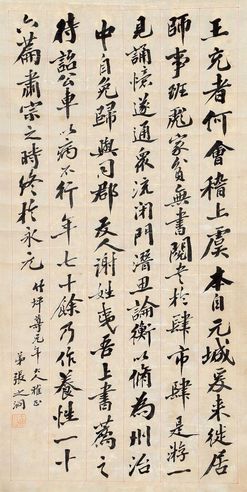 王充者何會稽上虞本自元城爰来徙居
師事班彪家貧無書閱書於肆市肆是游一
見誦憶遂通衆流閉門潛思論衡以脩為州治
中自免歸與同郡友人謝姓夷吾上書薦之
待詔公車以病不行年七十餘乃作養性一十
六篇肅宗之時終於永元
竹坪尊兄年大人雅正
弟張之洞